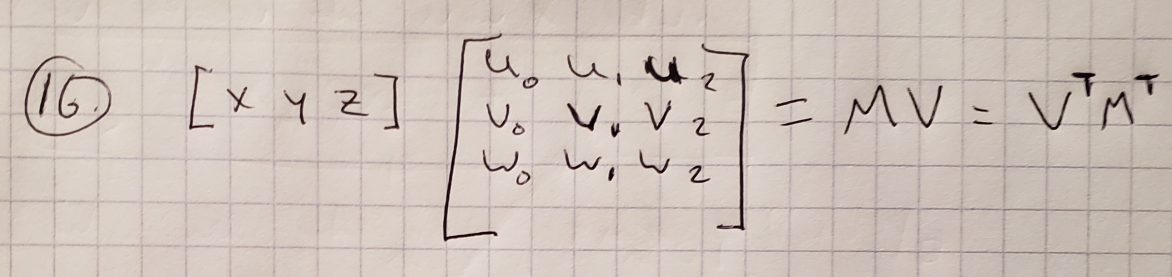 16. [x y z] [u₀ u₁ u₂
v₀ v₁ v₂
w₀ w₁ w₂] = MV = VᵀMᵀ